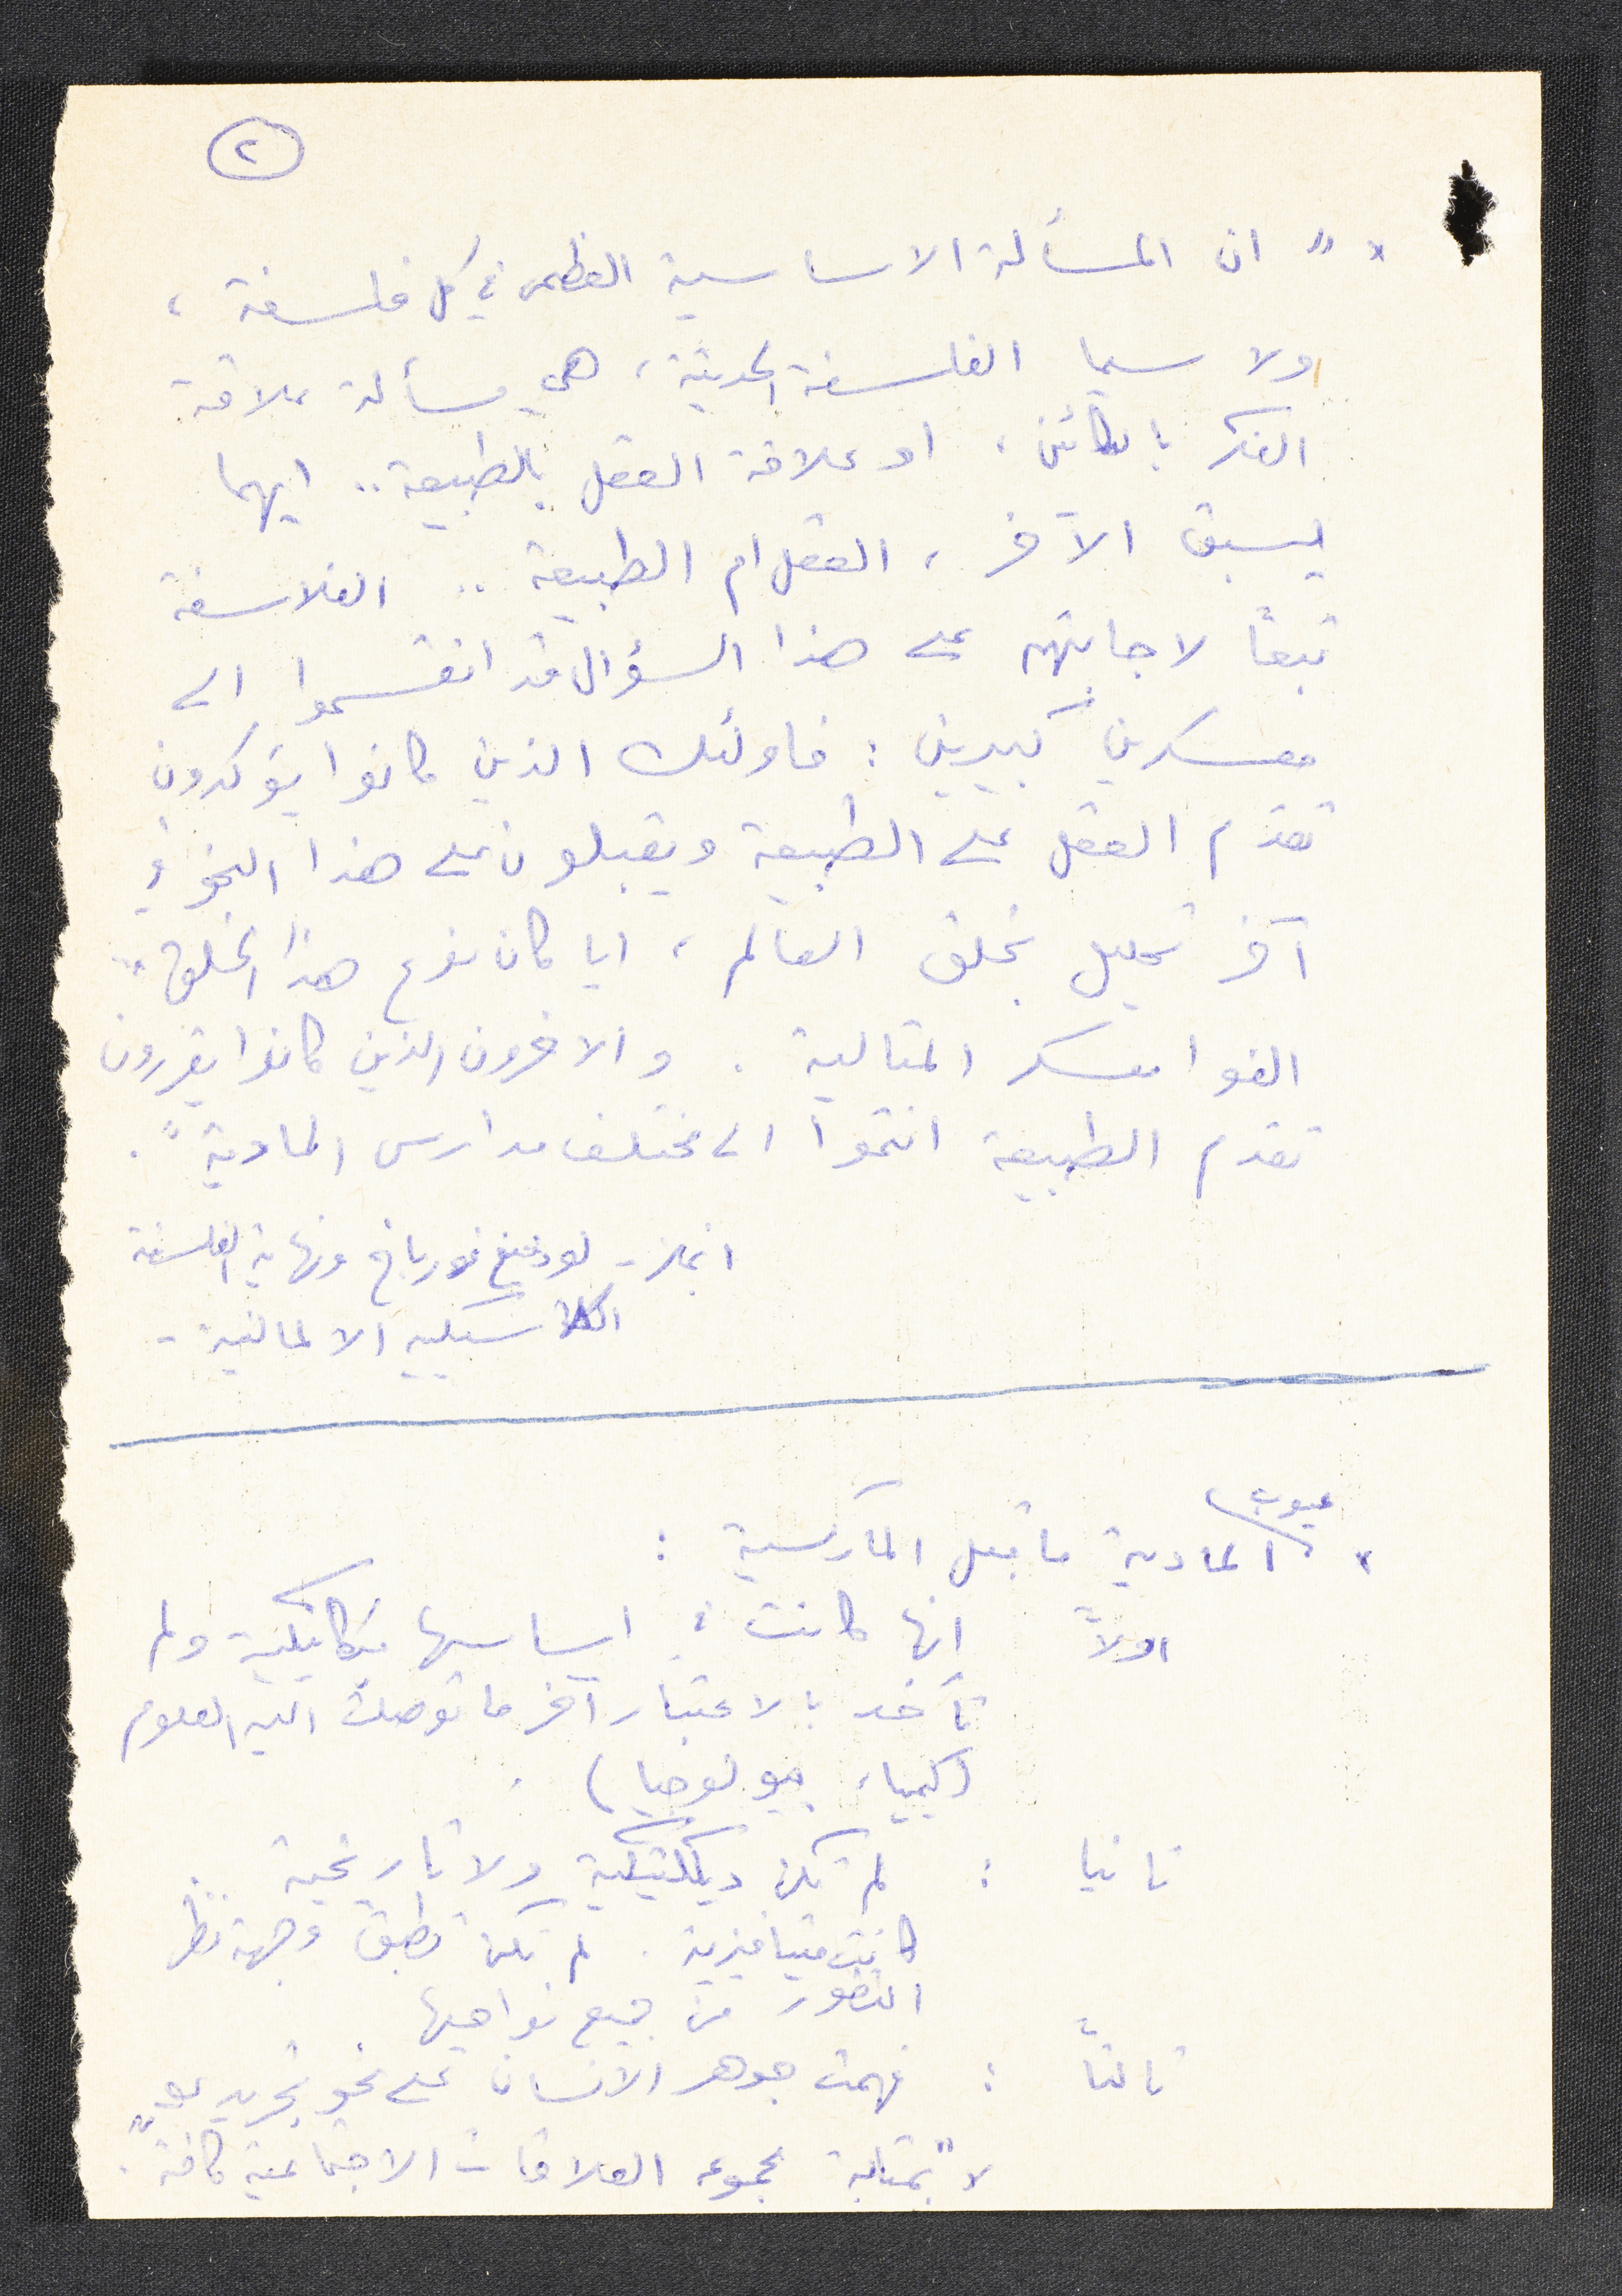 ٢
× " ان المسألة الاساسية العظمى في كل فلسفة ،
ولا سيما الفلسفة الحديثة ، هي مسألة علاقة
الفكر بالكائن ، او علاقة العقل بالطبيعة .. ايهما
يسبق الآخر ، العقل ام الطبيعة .. الفلاسفة
تبعاً لاجابتهم على هذا السؤال قد انقسموا الى
معسكرين كبيرين : فاولئك الذين كانوا يؤكدون
تقدم العقل على الطبيعة ويقبلون على هذا النحو في
آخر تحليل بخلق العالم ، ايا كان نوع هذا الخلق ..
الفوا معسكر المثالية . والاخرون الذين كانوا يقررون
تقدم الطبيعة انتموا الى مختلف مدارس المادية " .
انجلز - لودفيغ فورباخ ونهاية الفلسفة
الكلاسيكية الالمانية -
عيوب
× المادية ما قبل الماركسية :
اولاً انها كانت في اساسها ميكانيكية ولم
تأخذ بالاعتبار آخر ما توصلت اليه العلوم
(كيمياء ، بيولوجيا) .
ثانيا : لم تكن ديالكتيكية ولا تاريخية
كانت ميتافيزية . لم تكن تطبق وجهة نظر
التطور من جميع نواحيها .
ثالثاً : فهمت جوهر الانسان على نحو تجريدي
لا " بمثابة مجموعه العلاقات الاجتماعية كافة " .